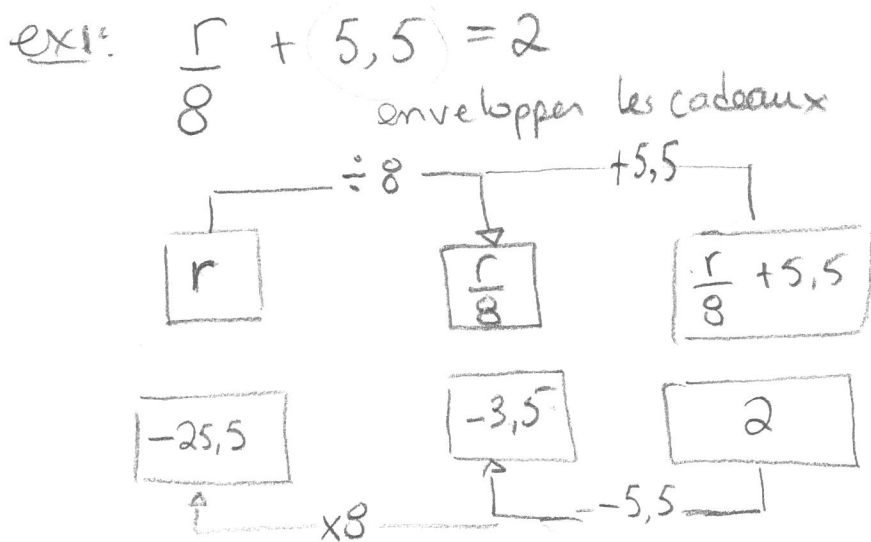 ex1: r/8 + 5,5 = 2
envelopper les cadeaux
÷8 +5,5
r r/8 r/8 +5,5
-25,5 -3,5 2
x8 -5,5